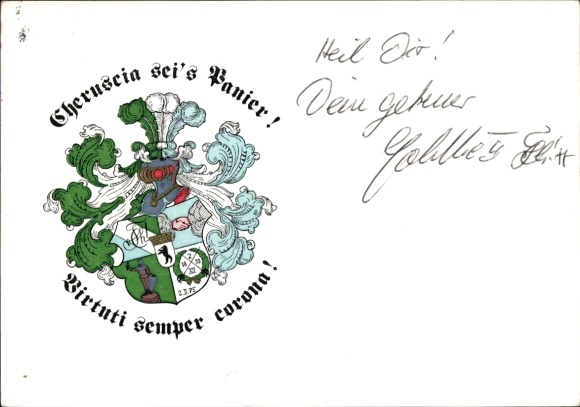 Cheruscia sei's Panier!
Virtuti semper corona!
2.3.75
Heil Dir!
Dein getreuer